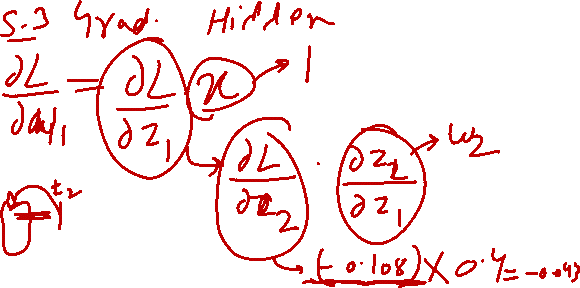 5.3 Grad. Hidden
∂L/∂w₁ = ∂L/∂z₁ x → 1
∂L/∂z₂ · ∂z₂/∂z₁ → w₂
t₂
(-0.108) × 0.4 = -0.043